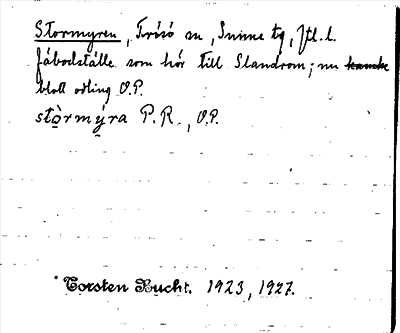 Stormyren, Frösö sn, Sunne tg, Jtl. l.
Fäbodställe som hör till Slandrom; nu
blott odling O.P.
stòrmýra P.R., O.P.
Torsten Bucht. 1923, 1927.